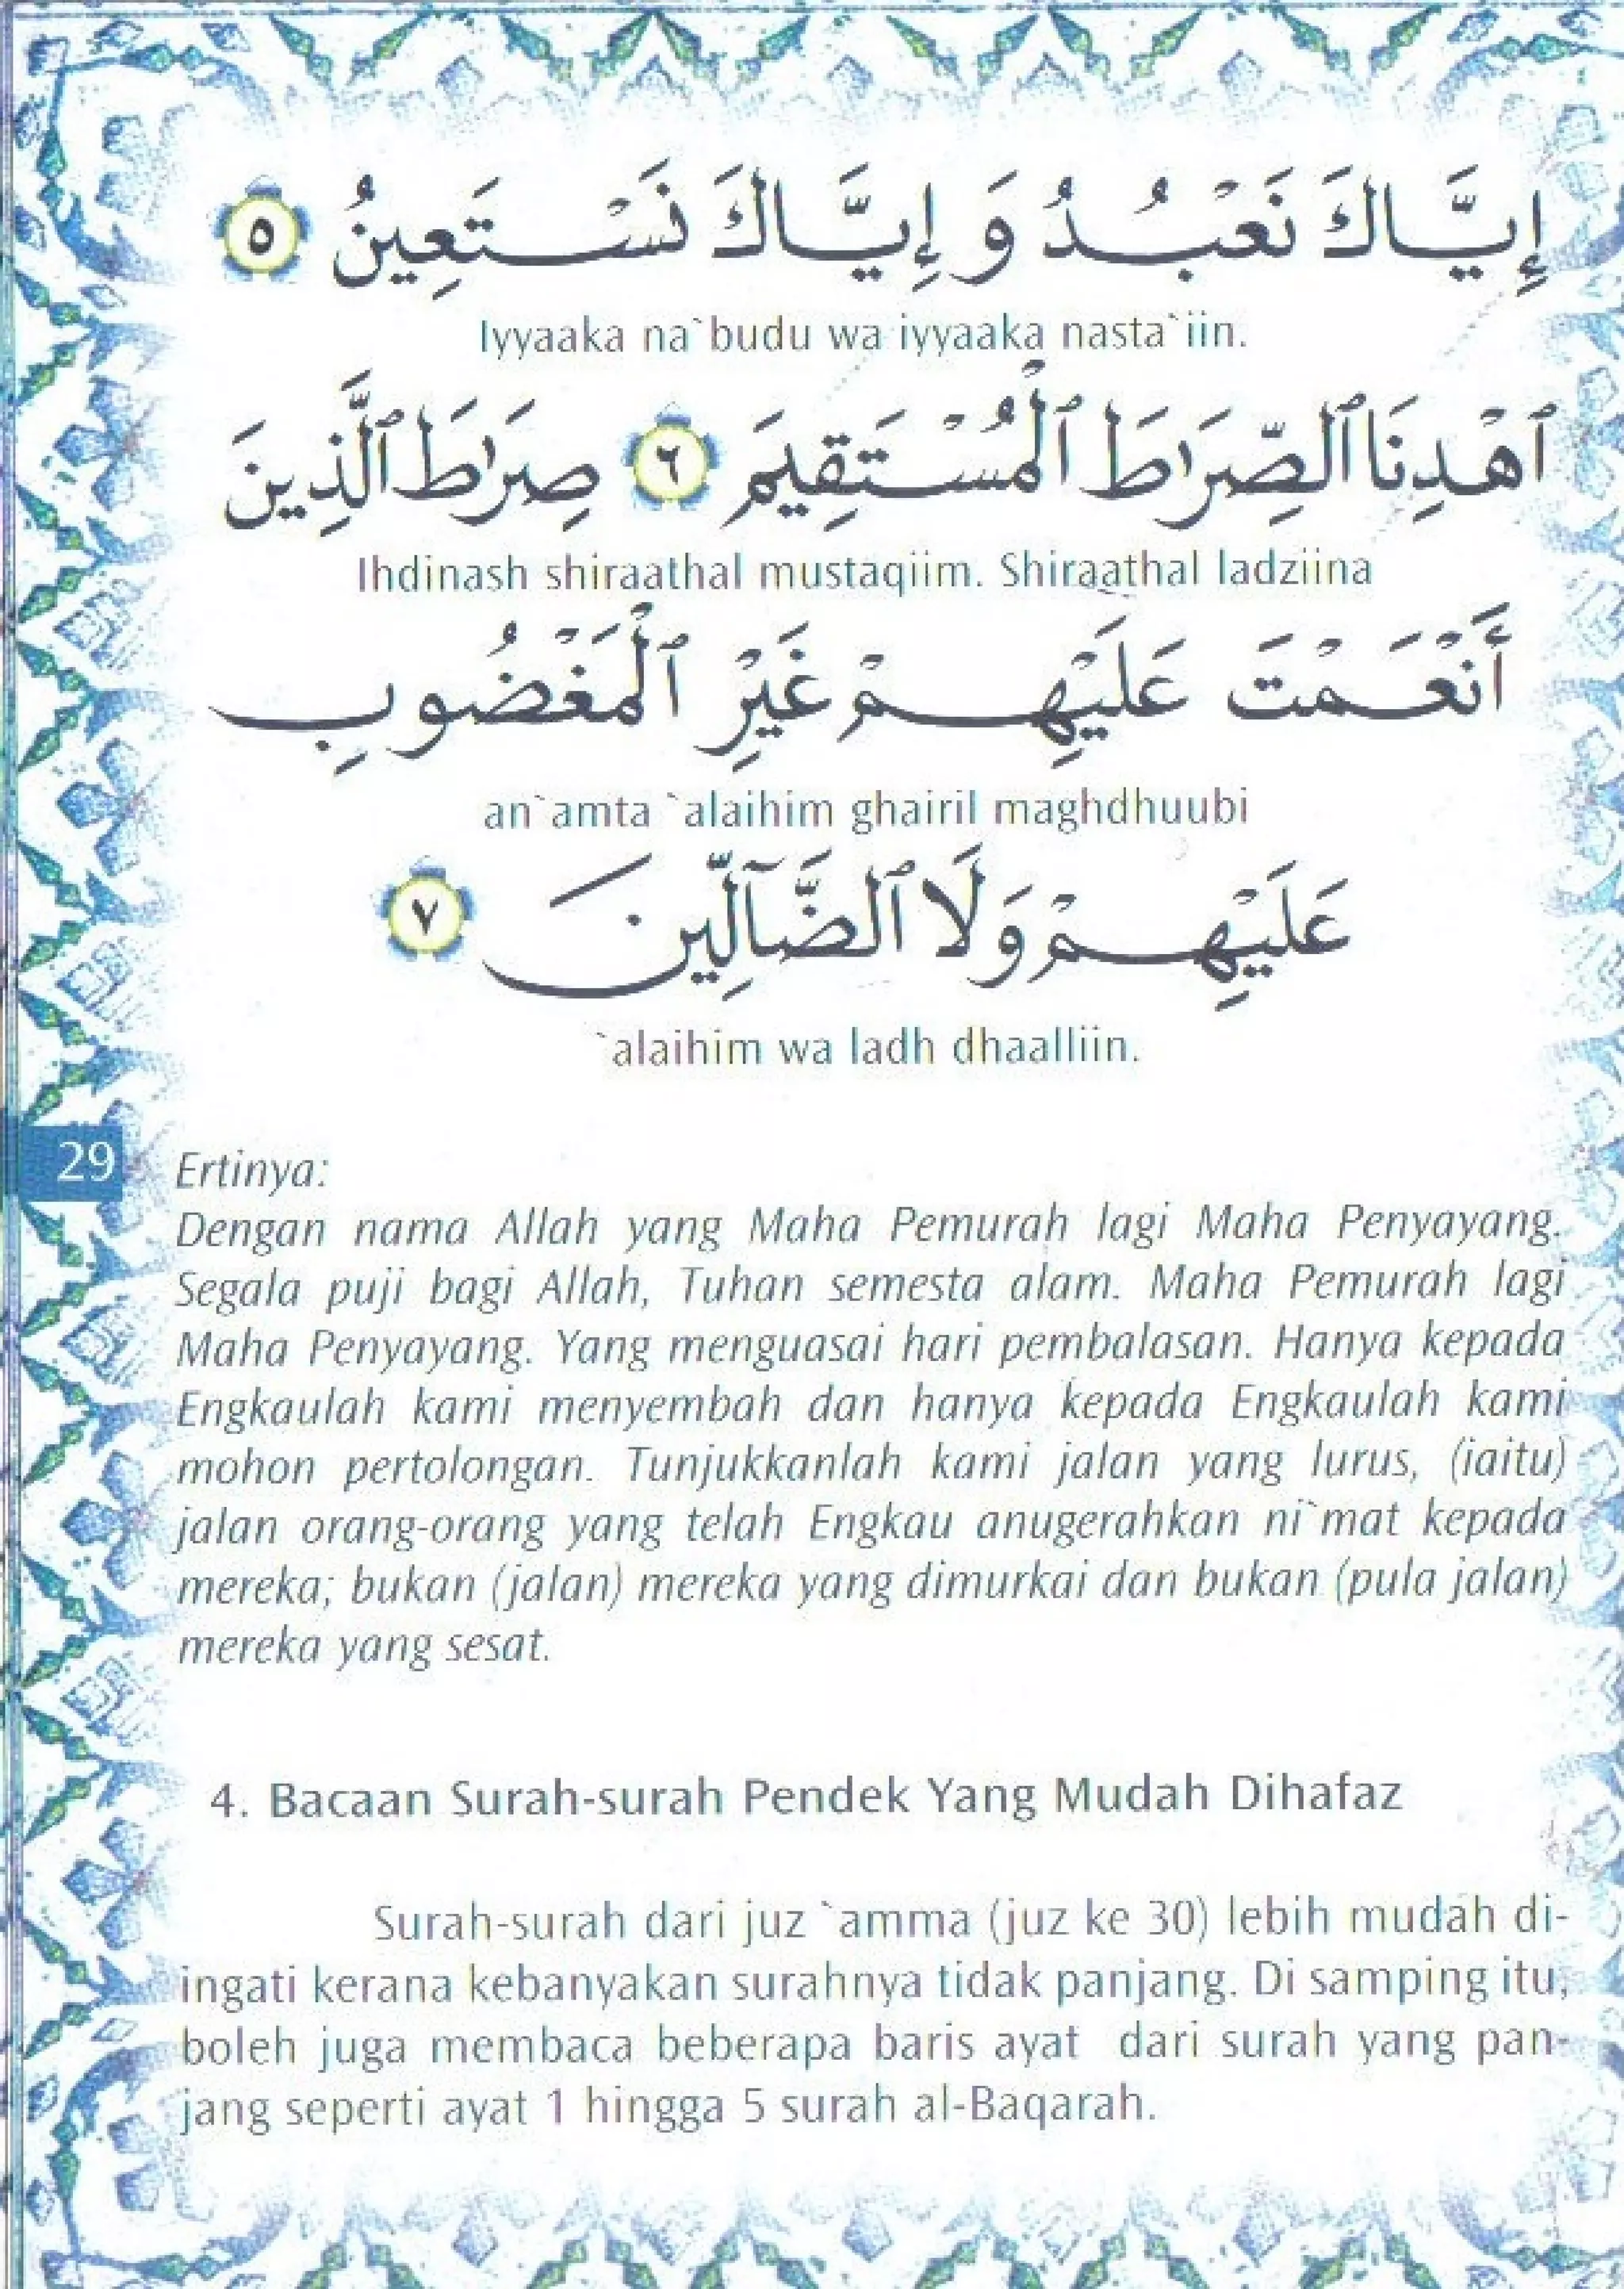 إِيَّاكَ نَعْبُدُ وَ إِيَّاكَ نَسْتَعِينُ ٥
Iyyaaka na`budu wa iyyaaka nasta`iin.
ٱهْدِنَا ٱلصِّرَاطَ ٱلْمُسْتَقِيمَ ٦ صِرَٰطَ ٱلَّذِينَ
Ihdinash shiraathal mustaqiim. Shiraathal ladziina
أَنْعَمْتَ عَلَيْهِمْ غَيْرِ ٱلْمَغْضُوبِ
an`amta `alaihim ghairil maghdhuubi
عَلَيْهِمْ وَلَا ٱلضَّآلِّينَ ٧
`alaihim wa ladh dhaalliin.
29
Ertinya:
Dengan nama Allah yang Maha Pemurah lagi Maha Penyayang.
Segala puji bagi Allah, Tuhan semesta alam. Maha Pemurah lagi
Maha Penyayang. Yang menguasai hari pembalasan. Hanya kepada
Engkaulah kami menyembah dan hanya kepada Engkaulah kami
mohon pertolongan. Tunjukkanlah kami jalan yang lurus, (iaitu)
jalan orang-orang yang telah Engkau anugerahkan ni`mat kepada
mereka; bukan (jalan) mereka yang dimurkai dan bukan (pula jalan)
mereka yang sesat.
4. Bacaan Surah-surah Pendek Yang Mudah Dihafaz
Surah-surah dari juz `amma (juz ke 30) lebih mudah di-
ingati kerana kebanyakan surahnya tidak panjang. Di samping itu,
boleh juga membaca beberapa baris ayat dari surah yang pan-
jang seperti ayat 1 hingga 5 surah al-Baqarah.